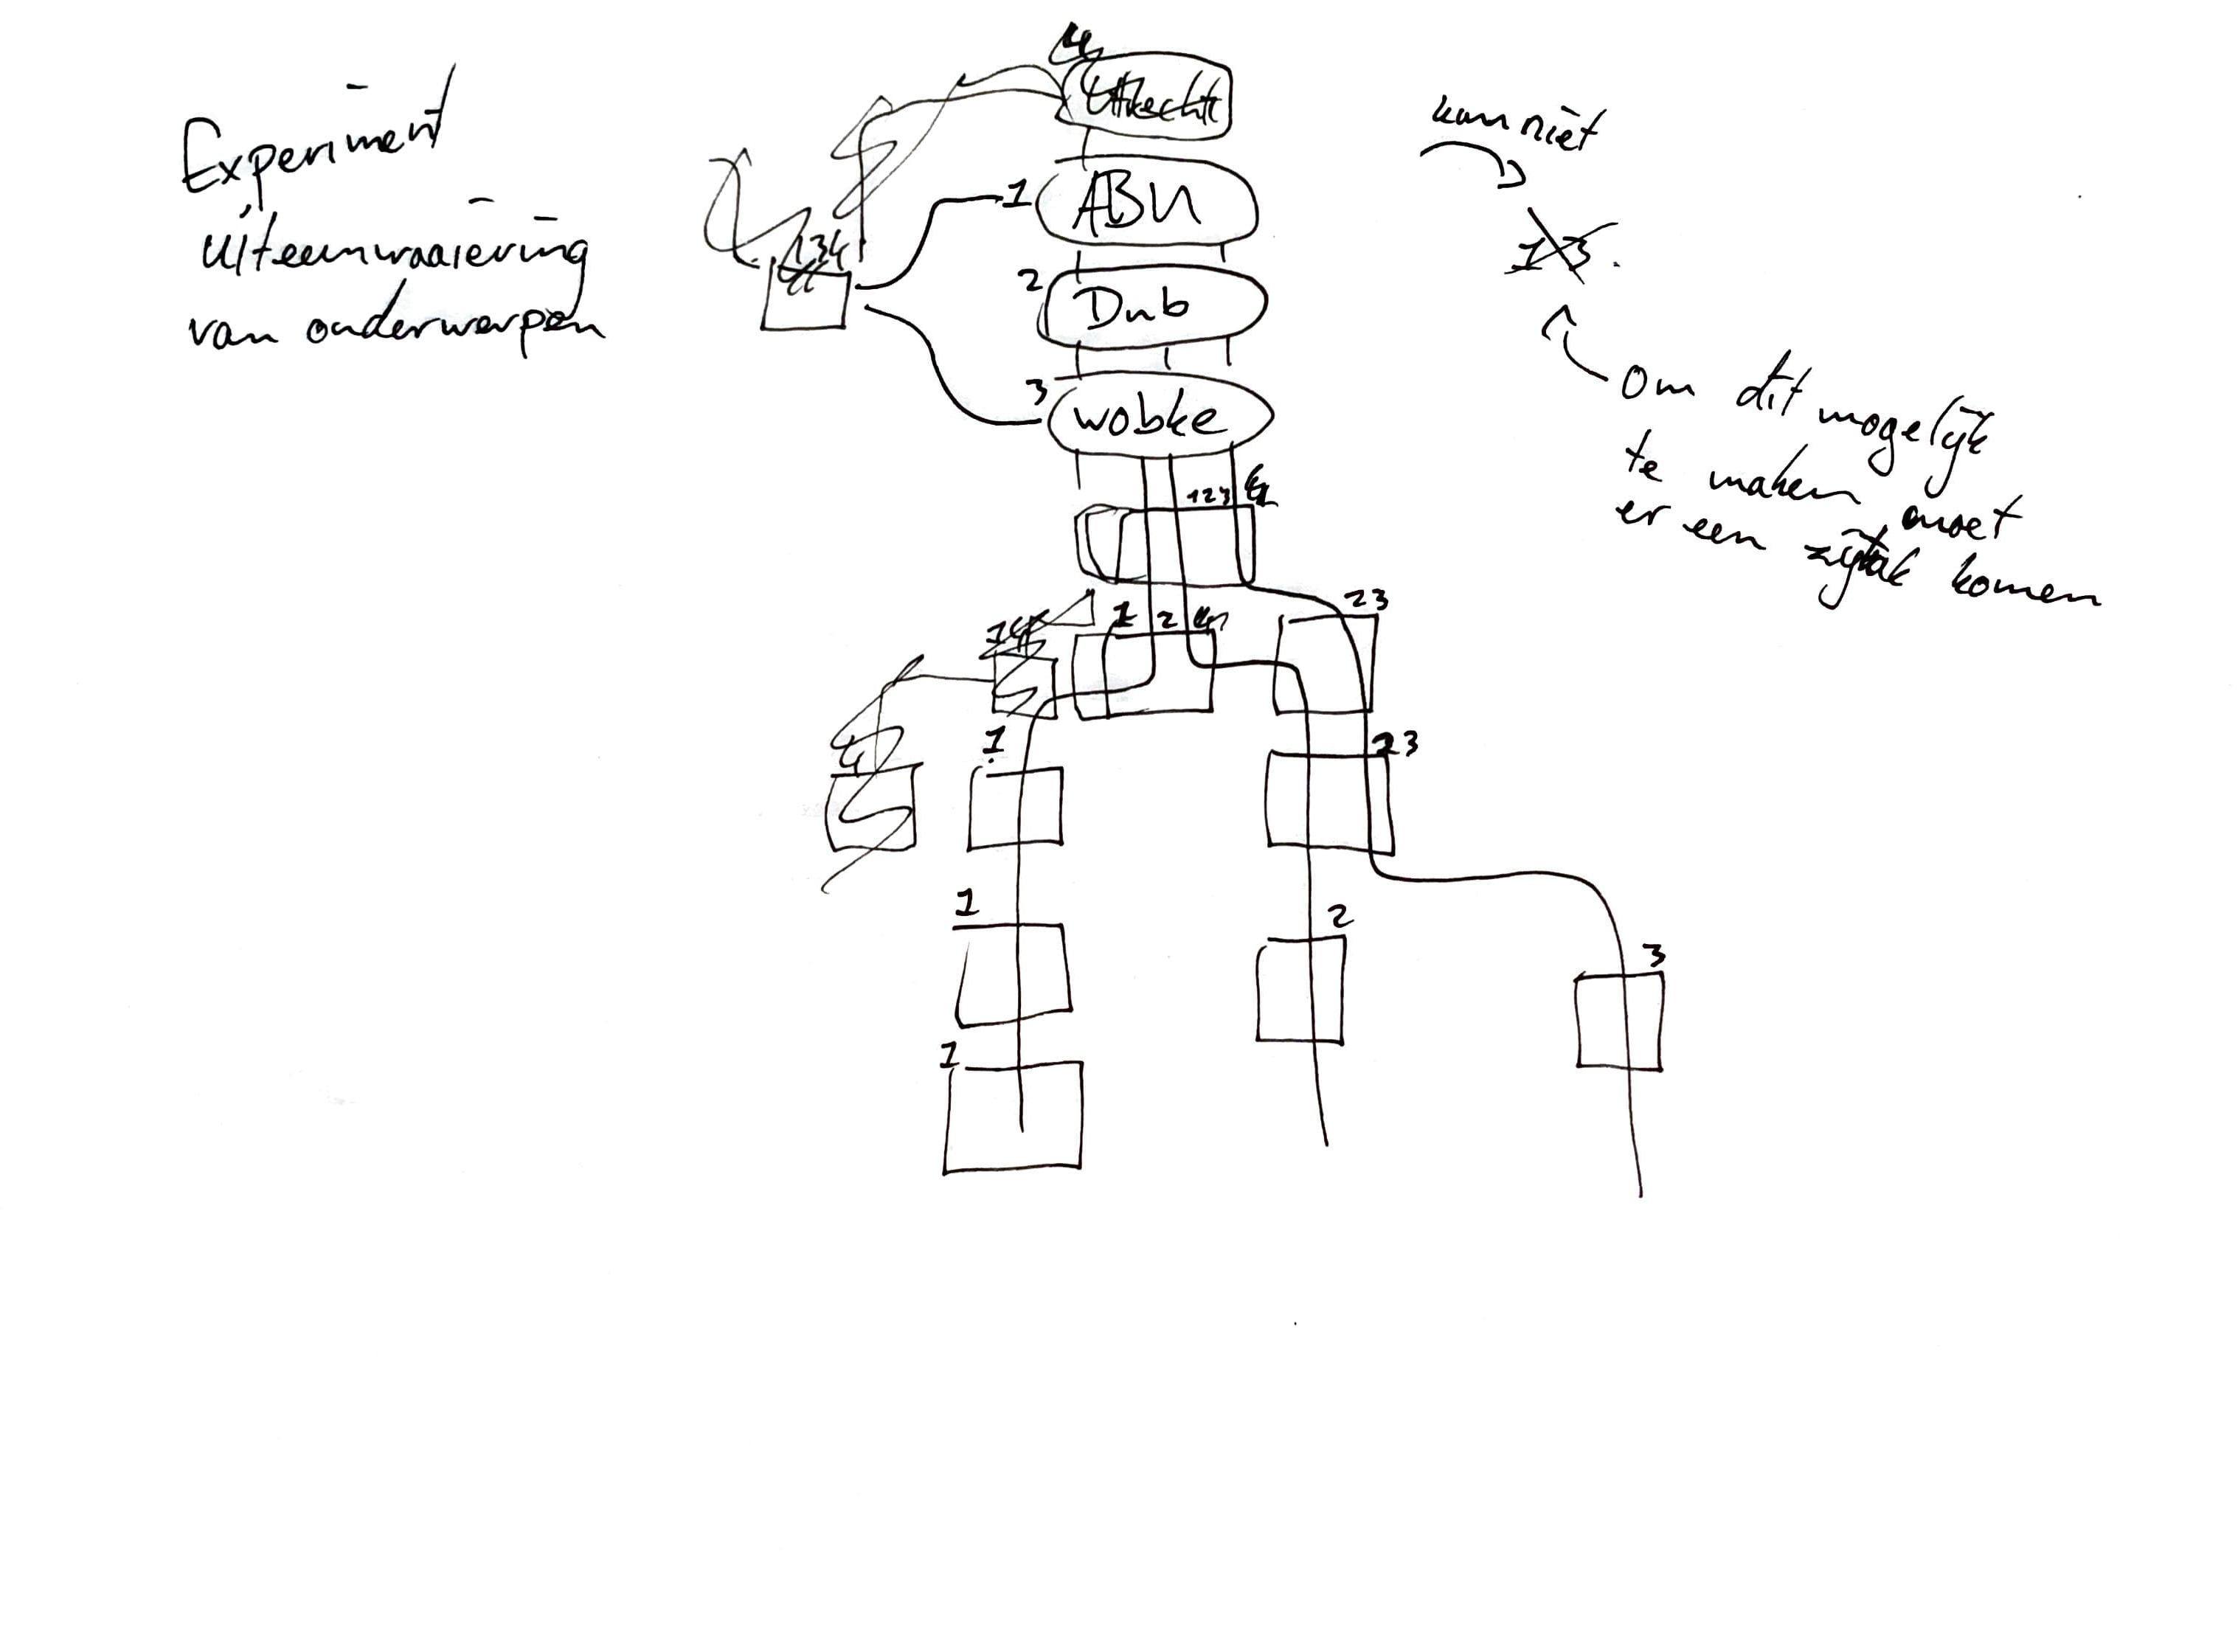 Experiment
uiteenwaaiering
van onderwerpen
4
Utrecht
1 ABN
2 Dnb
3 wobke
134
123
1 2
23
1
23
1
2
3
1
kan niet
13.
Om dit mogelijk
te maken moet
er een zijtak komen